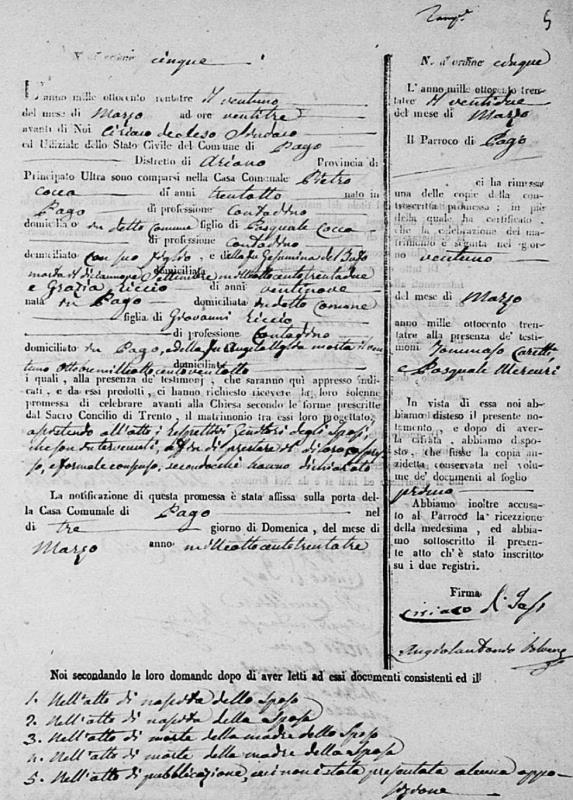 5
N.° d'ordine cinque
L'anno mille ottocento trentatre il ventuno
del mese di Marzo ad ore ventitre
avanti di Noi Ciriaco de Sindaco
ed Ufiziale dello Stato Civile del Comune di Pago
Distretto di Ariano Provincia di
Principato Ultra sono comparsi nella Casa Comunale Pietro
Cocca di anni trentotto nato in
Pago di professione Contadino
domiciliato in detto Comune figlio di Pasquale Cocca
di professione Contadino
domiciliato con suo figlio, e della fu Gesumina del
morta dì diciannove Settembre milleottocentotrentadue domiciliata
e Grazia Riccio di anni ventinove
nata in Pago domiciliata in detto Comune
figlia di Giovanni Riccio
di professione Contadino
domiciliato in Pago, e della fu Angela morta il ven
tuno Ottobre milleottocentoventotto domiciliata
i quali, alla presenza de' testimonj, che saranno quì appresso indi-
cati, e da essi prodotti, ci hanno richiesto ricevere la loro solenne
promessa di celebrare avanti alla Chiesa secondo le forme prescritte
dal Sacro Concilio di Trento, il matrimonio tra essi loro progettato,
assistendo all'atto i rispettivi Genitori degli Sposi,
che son intervenuti, a fin di prestare di loro espres
so, e formale consenso, secondochè hanno dichiarato
La notificazione di questa promessa è stata affissa sulla porta del-
la Casa Comunale di Pago nel
dì tre giorno di Domenica, del mese di
Marzo anno milleottocentotrentatre
N. d'ordine cinque
L'anno mille ottocento tren-
tatre il ventidue
del mese di Marzo
Il Parroco di Pago
ci ha rimessa
una delle copie della con-
troscritta promessa; in piè
della quale ha certificato
che la celebrazione del ma-
trimonio è seguita nel gior-
no ventuno
del mese di Marzo
anno mille ottocento tren-
tatre alla presenza de' testi-
moni Tommaso Caretti
e Pasquale Mercuri
In vista di essa noi ab-
biamo disteso il presente no-
tamento, e dopo di aver-
la cifrata, abbiamo dispo-
sto, che fusse la copia an-
zidetta conservata nel volu-
me de' documenti al foglio
primo
Abbiamo inoltre accusa-
to al Parroco la ricezzione
della medesima, ed abbia-
mo sottoscritto il presen-
te atto ch'è stato inscritto
su i due registri.
Firma
Ciriaco
Noi secondando le loro domande dopo di aver letti ad essi documenti consistenti ed il
1. Nell'atto di nascita dello Sposo
2. Nell'atto di nascita della Sposa
3. Nell'atto di morte della madre dello Sposo
4. Nell'atto di morte della madre della Sposa
5. Nell'atto di pubblicazione, cui non è stata presentata alcuna oppo-
sizione